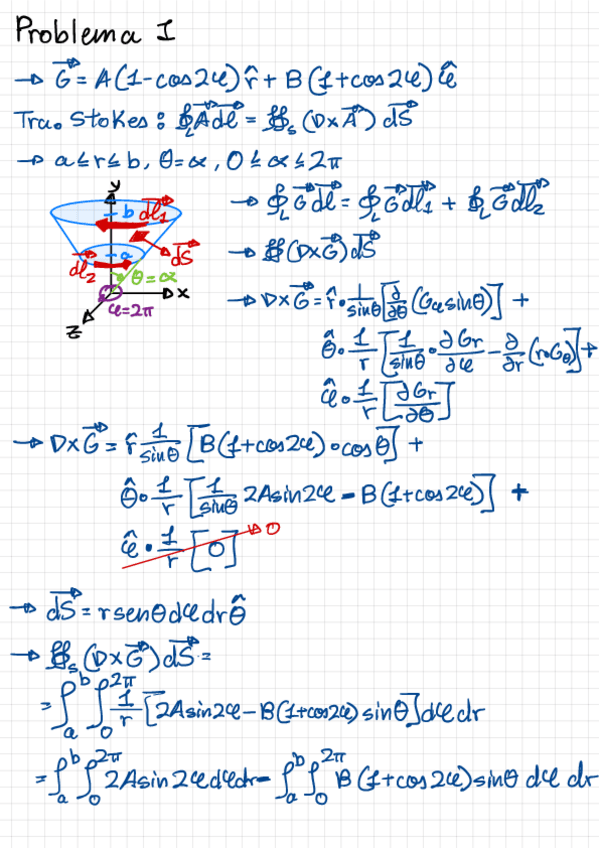 Problema 1
→ G⃗ = A(1-cos2φ) r̂ + B(1+cos2φ) φ̂
Tra. Stokes: ∮_L A⃗ dl⃗ = ∯_s (∇×A⃗) dS⃗
→ a≤r≤b, θ=α, 0≤α≤2π
y
b dl⃗₁
a dS⃗
dl⃗₂ θ=α
x
φ=2π
z
→ ∮_L G⃗ dl⃗ = ∮_L G⃗ dl⃗₁ + ∮_L G⃗ dl⃗₂
→ ∯ (∇×G⃗) dS⃗
→ ∇×G⃗ = r̂ · 1/sinθ [∂/∂θ (Gφ sinθ)] +
θ̂ · 1/r [1/sinθ · ∂Gr/∂φ - ∂/∂r (r·Gθ)] +
φ̂ · 1/r [∂Gr/∂θ]
→ ∇×G⃗ = r̂ 1/sinθ [B(1+cos2φ)·cosθ] +
θ̂ · 1/r [1/sinθ 2Asin2φ - B(1+cos2φ)] +
φ̂ · 1/r [0] → 0
→ dS⃗ = r senθ dφ dr θ̂
→ ∯_s (∇×G⃗) dS⃗ =
= ∫_a^b ∫_0^2π 1/r [2Asin2φ - B(1+cos2φ) sinθ] dφ dr
= ∫_a^b ∫_0^2π 2Asin2φ dφ dr - ∫_a^b ∫_0^2π B(1+cos2φ) sinθ dφ dr